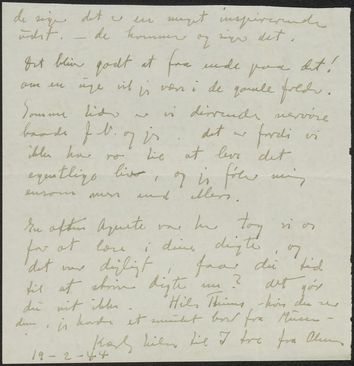 de siger det er en meget inspirerende
udst. — de kommer og siger det.
Det bliver godt at faa ende paa det!
om en uge vil jeg være i de gamle folder.
Somme tider er vi dirrende nervøse
baade J.V. og jeg. det er fordi vi
ikke har ro til at leve det
egentlige liv, og jeg føler mig
ensom mere end ellers.
En aften Agnete var her tog vi os
for at læse i dine digte, og
det var dejligt, faar du tid
til at skrive digte nu? det gør
du vist ikke. Hils
din, jeg havde et bord fra
Kærlig hilsen til I to fra
19-2-44